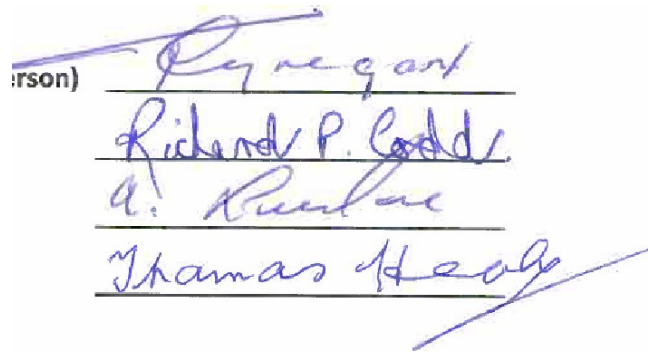 erson)
Richard P. Codd
a.
Thomas Healy